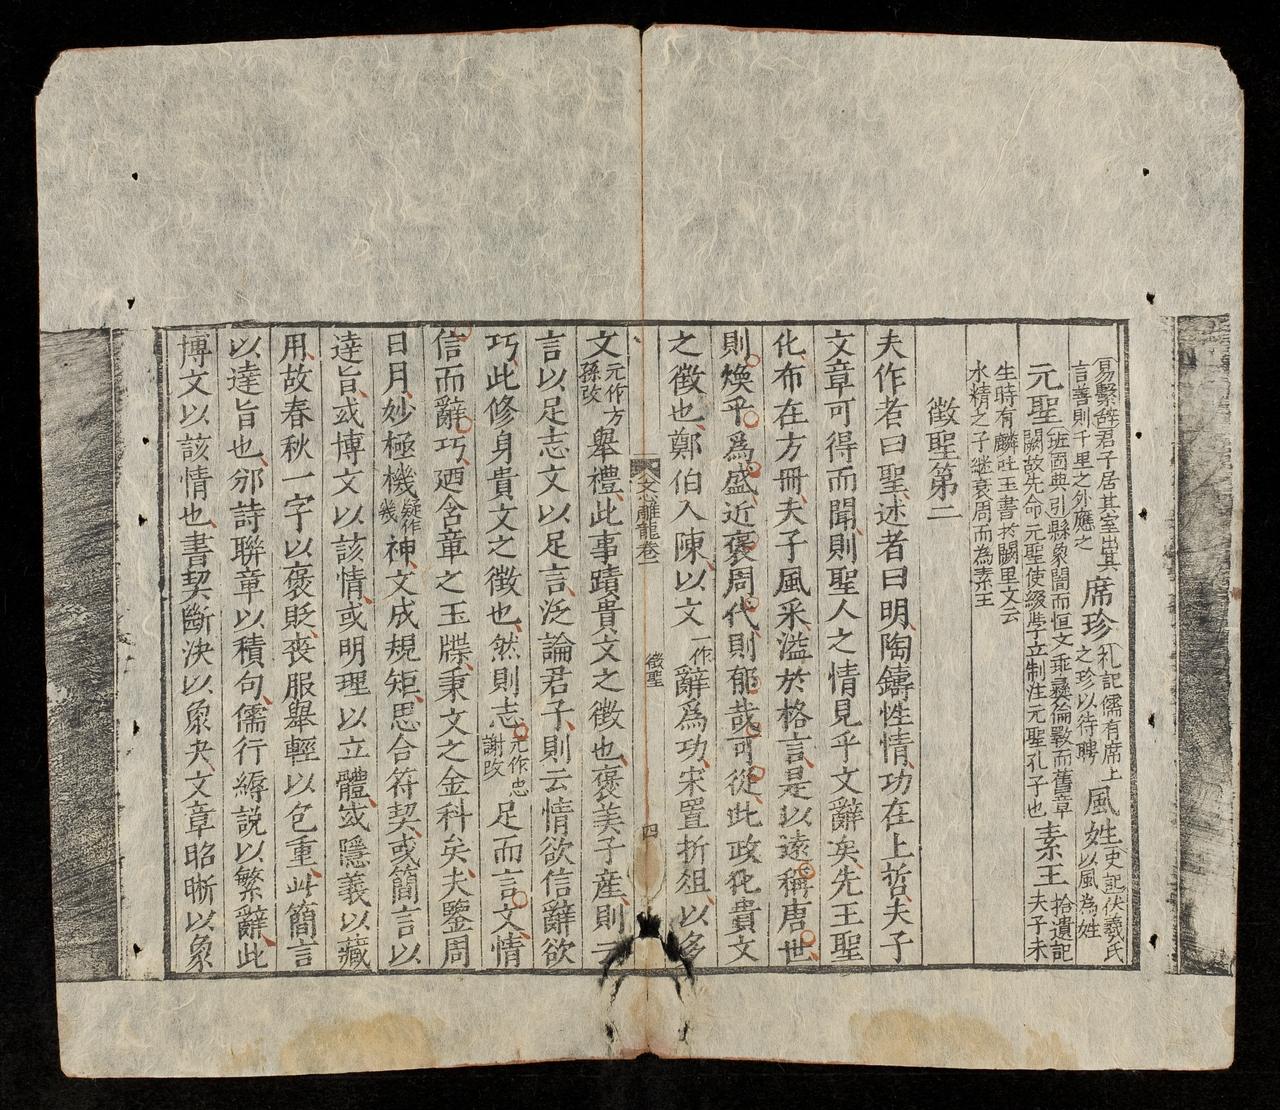 易繫辭君子居其室出其
言善則千里之外應之
席珍
禮記儒有席上
之珍以待聘
風姓
史記伏羲氏
以風為姓
元聖
班固典引縣象闇而恒文乖彝倫斁而舊章
闕故先命元聖使綴學立制注元聖孔子也
素王
拾遺記
夫子未
生時有麟吐玉書於闕里文云
水精之子継衰周而為素王
徵聖第二
夫作者曰聖述者曰明陶鑄性情功在上哲夫子
文章可得而聞則聖人之情見乎文辭矣先王聖
化布在方冊夫子風采溢於格言是以遠稱唐世
則煥乎爲盛近褒周代則郁哉可從此政化貴文
之徵也鄭伯入陳以文一作辭爲功宋置折俎以多
文心雕龍卷一 徵聖 四
文元作方孫改舉禮此事蹟貴文之徵也褒美子產則云
言以足志文以足言泛論君子則云情欲信辭欲
巧此修身貴文之徵也然則志元作忠謝改足而言文情
信而辭巧廼含章之玉牒秉文之金科矣夫鑒周
日月妙極機疑作幾神文成規矩思合符契或簡言以
達旨或博文以該情或明理以立體或隱義以藏
用故春秋一字以褒貶喪服舉輕以包重此簡言
以達旨也邠詩聯章以積句儒行縟説以繁辭此
博文以該情也書契斷決以象夬文章昭晰以象